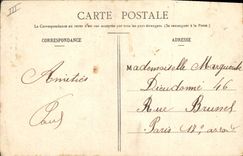 III
CARTE POSTALE
La Correspondance au recto n'est pas acceptée par tous les pays étrangers (Se renseigner à la Poste)
CORRESPONDANCE
ADRESSE
Amitiés
Paul
Mademoiselle Marguerite
Dieudonné 46
Rue Baussel
Paris 12e arrond